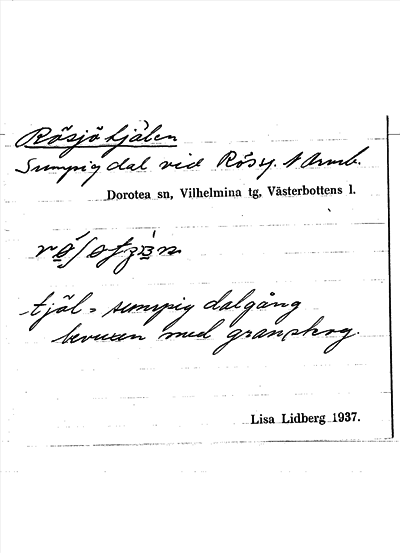 Rösjötjälen
Sumpig dal vid Rösj. t Ormb.
Dorotea sn, Vilhelmina tg, Västerbottens l.
tjäl = sumpig dalgång
bevuxen med granskog.
Lisa Lidberg 1937.